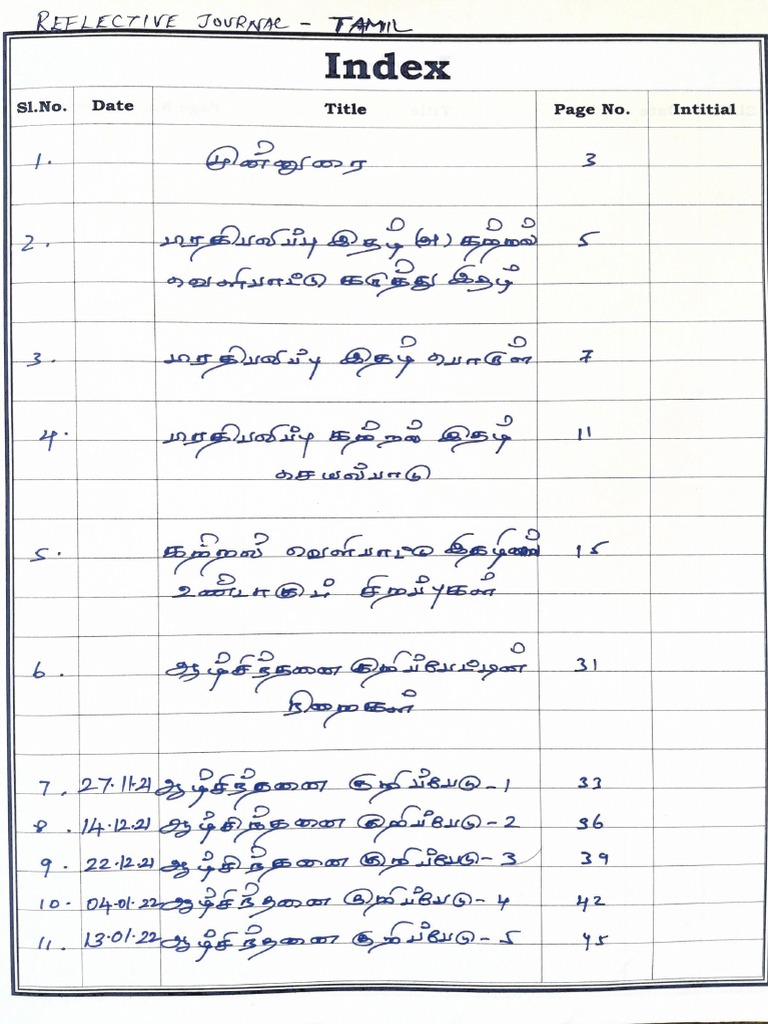 REFLECTIVE JOURNAL - TAMIL
Index
Sl.No. Date Title Page No. Intitial
1. முன்னுரை 3
2. பிரதிபலிப்பு இதழ் (அ) கற்றல் 5
வெளிபாட்டு கருத்து இதழ்
3. பிரதிபலிப்பு இதழ் பொருள் 7
4. பிரதிபலிப்பு கற்றல் இதழ் 11
செயல்பாடு
5. கற்றல் வெளிபாட்டு இதழின் 15
உண்டாகும் சிறப்புகள்
6. ஆழ்சிந்தனை குறிப்பேட்டின் 31
நிறைகள்
7. 27.11.21 ஆழ்சிந்தனை குறிப்பேடு - 1 33
8. 14.12.21 ஆழ்சிந்தனை குறிப்பேடு - 2 36
9. 22.12.21 ஆழ்சிந்தனை குறிப்பேடு - 3 39
10. 04.01.22 ஆழ்சிந்தனை குறிப்பேடு - 4 42
11. 13.01.22 ஆழ்சிந்தனை குறிப்பேடு - 5 45